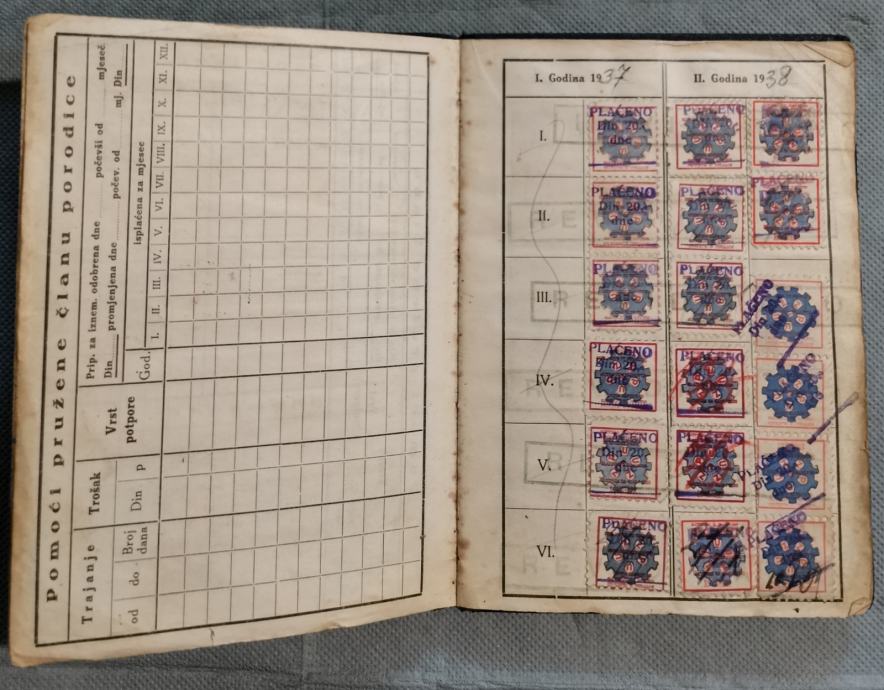 Pomoći pružene članu porodice
Prip. za iznem. odobrena dne počevši od mjeseč.
Din promjenjena dne počev. od mj. Din
isplaćena za mjesec
Trajanje
Trošak
Vrst potpore
God.
I. II. III. IV. V. VI. VII. VIII. IX. X. XI. XII.
od do Broj dana
Din p
I. Godina 1937
II. Godina 1938
I.
PLAĆENO
Din 20.
dne
PLAĆENO
II.
PLAĆENO
Din 20.
dne
PLAĆENO
PLAĆENO
III.
PLAĆENO
PLAĆENO
PLAĆENO
Din
IV.
PLAĆENO
Din 20
dne
PLAĆENO
V.
PLAĆENO
Din 20
PLAĆENO
VI.
PLAĆENO